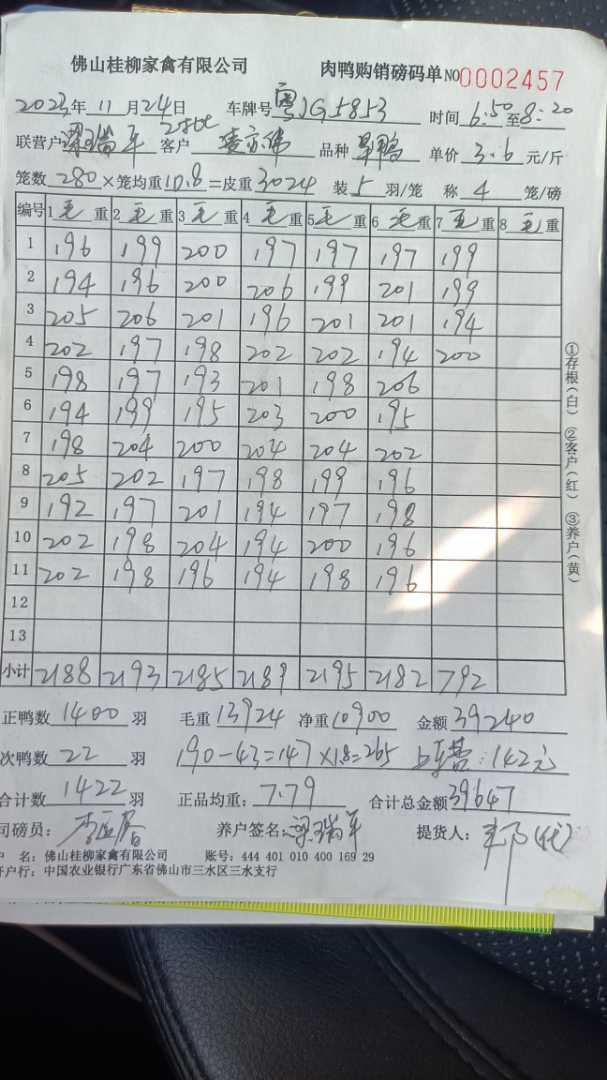 佛山桂柳家禽有限公司 肉鸭购销磅码单 NO0002457
2023年 11月24日 车牌号 粤JG5853 时间 6:50至8:20
联营户 梁瑞平 客户 品种 旱鸭 单价 3.6 元/斤
笼数 280 ×笼均重 10.8 =皮重 3024 装 5 羽/笼 称 4 笼/磅
编号 1毛重 2毛重 3毛重 4毛重 5毛重 6毛重 7毛重 8毛重
1 196 199 200 197 197 197 199
2 194 196 200 206 199 201 199
3 205 206 201 196 201 201 194
4 202 197 198 202 202 194 200
5 198 197 193 201 198 206
6 194 199 195 203 200 195
7 198 204 200 204 204 202
8 205 202 197 198 199 196
9 192 197 201 194 197 198
10 202 198 204 194 200 196
11 202 198 196 194 198 196
12
13
小计 2188 2193 2185 2189 2195 2182 792
①存根(白) ②客户(红) ③养户(黄)
正鸭数 1400 羽 毛重 13924 净重 10900 金额 39240
次鸭数 22 羽 190-43=147×1.8=265 142元
合计数 1422 羽 正品均重: 7.79 合计总金额 39647
司磅员: 养户签名: 梁瑞平 提货人:
户 名: 佛山桂柳家禽有限公司 账号: 444 401 010 400 169 29
开户行: 中国农业银行广东省佛山市三水区三水支行